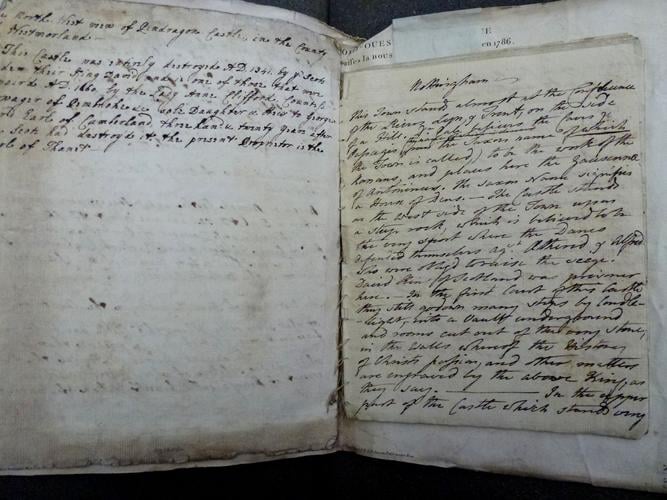 North West view of Pendragon Castle, in the County
Westmorland.
This Castle was entirely destroyed A.D. 1341. by ye Scots
their King David; and is one of those that were
A.D. 1660. by the Lady Anne Clifford Countess
Dowager of Pembroke &c. sole Daughter & Heir to George
Earle of Cumberland, three hund. & twenty years after
Scots had destroyed it. the present Proprietor is the
of Thanet
OQUES
E
en 1786.
la nous
Nottingham
This Town stands almost at the Confluence
of the Rivers & Trent, on the side
of a Hill. Dr. Gale supposes the Caves &
Passages (from the Saxon name of which
the Town is called) to be the work of the
Romans, and places here the Gausennæ
of Antoninus. the Saxon Name signifies
a House of Dens. — The Castle stands
on the west side of the Town upon
a steep rock, which is believed to be
the very spot where the Danes
defended themselves agt. & Alfred
who were obliged to raise the seige.
David King of Scotland was prisoner
here. — In the first Court of this Castle
they still go down many steps by Candle-
-light, into a Vault underground
and rooms cut out of the very stone,
in the walls whereof the History
of Christs passion, and other matters
are engraved by the above King, as
they say. In the upper
part of the Castle which stands very